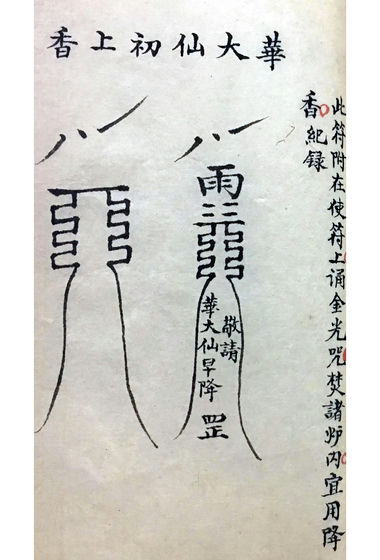 華大仙初上香
此符附在使符上誦金光咒焚諸炉内宜用降
香紀録
雨
三
敬請
華大仙早降
罡